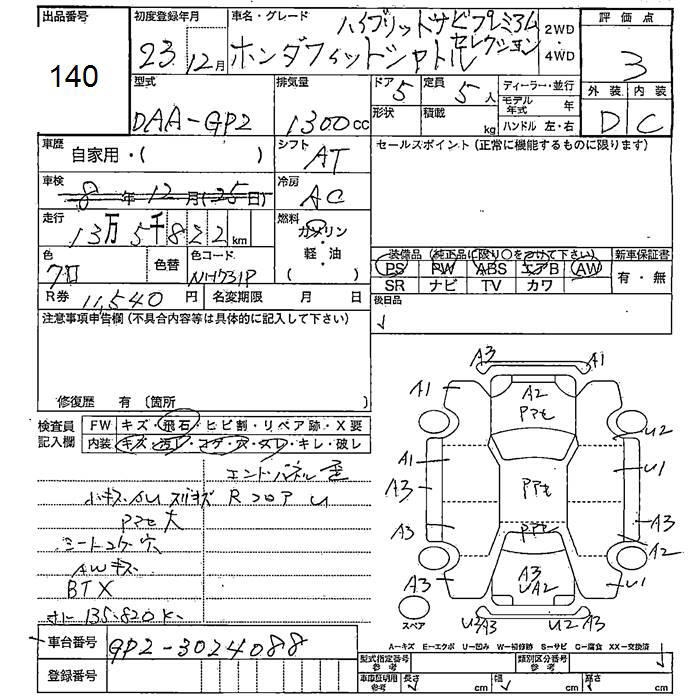 出品番号
140
初度登録年月
23年12月
車名・グレード
ハイブリットナビプレミアム
ホンダフィットシャトル セレクション
2WD
・
4WD
評価点
3
外装 内装
D C
型式
DAA-GP2
排気量
1300cc
ドア 5
定員 5人
形状
積載 kg
ディーラー・並行
モデル年式 年
ハンドル 左・右
車歴
自家用・( )
シフト
AT
セールスポイント (正常に機能するものに限ります)
車検
8年12月(25日)
冷房
AC
走行
13万5千822km
燃料
ガソリン
・
軽・油
( )
色
クロ
色替
色コード
NH731P
装備品 (純正品に限り○をつけて下さい)
PS PW ABS エアB AW
SR ナビ TV カワ
新車保証書
有・無
R券 11,540円
名変期限 月 日
後日品
注意事項申告欄(不具合内容等は具体的に記入して下さい)
修復歴 有 〔箇所 〕
検査員
記入欄
FW キズ・飛石・ヒビ割・リペア跡・X要
内装 キズ・汚レ・コゲ・穴・スレ・キレ・破レ
エンドパネル歪
小キズ・AU スリキズ RフロアU
PアセAせ大
シートコゲ穴
AWキズ
BTX
オドー135.820K-
車台番号 GP2-3024088
登録番号
A3 A1
A1 A2
Pアセ
U2
A1 U1
A3 Pアセ
A3 Pアセ A3
A2
A3 A3 U1
UA2
スペア
U2 A3 U2 A3
A=キズ E=エクボ U=凹み W=補修跡 S=サビ C=腐食 XX=交換済
型式指定番号
参考
類別区分番号
参考
車庫証明用
参考
長さ cm 幅 cm 高さ cm